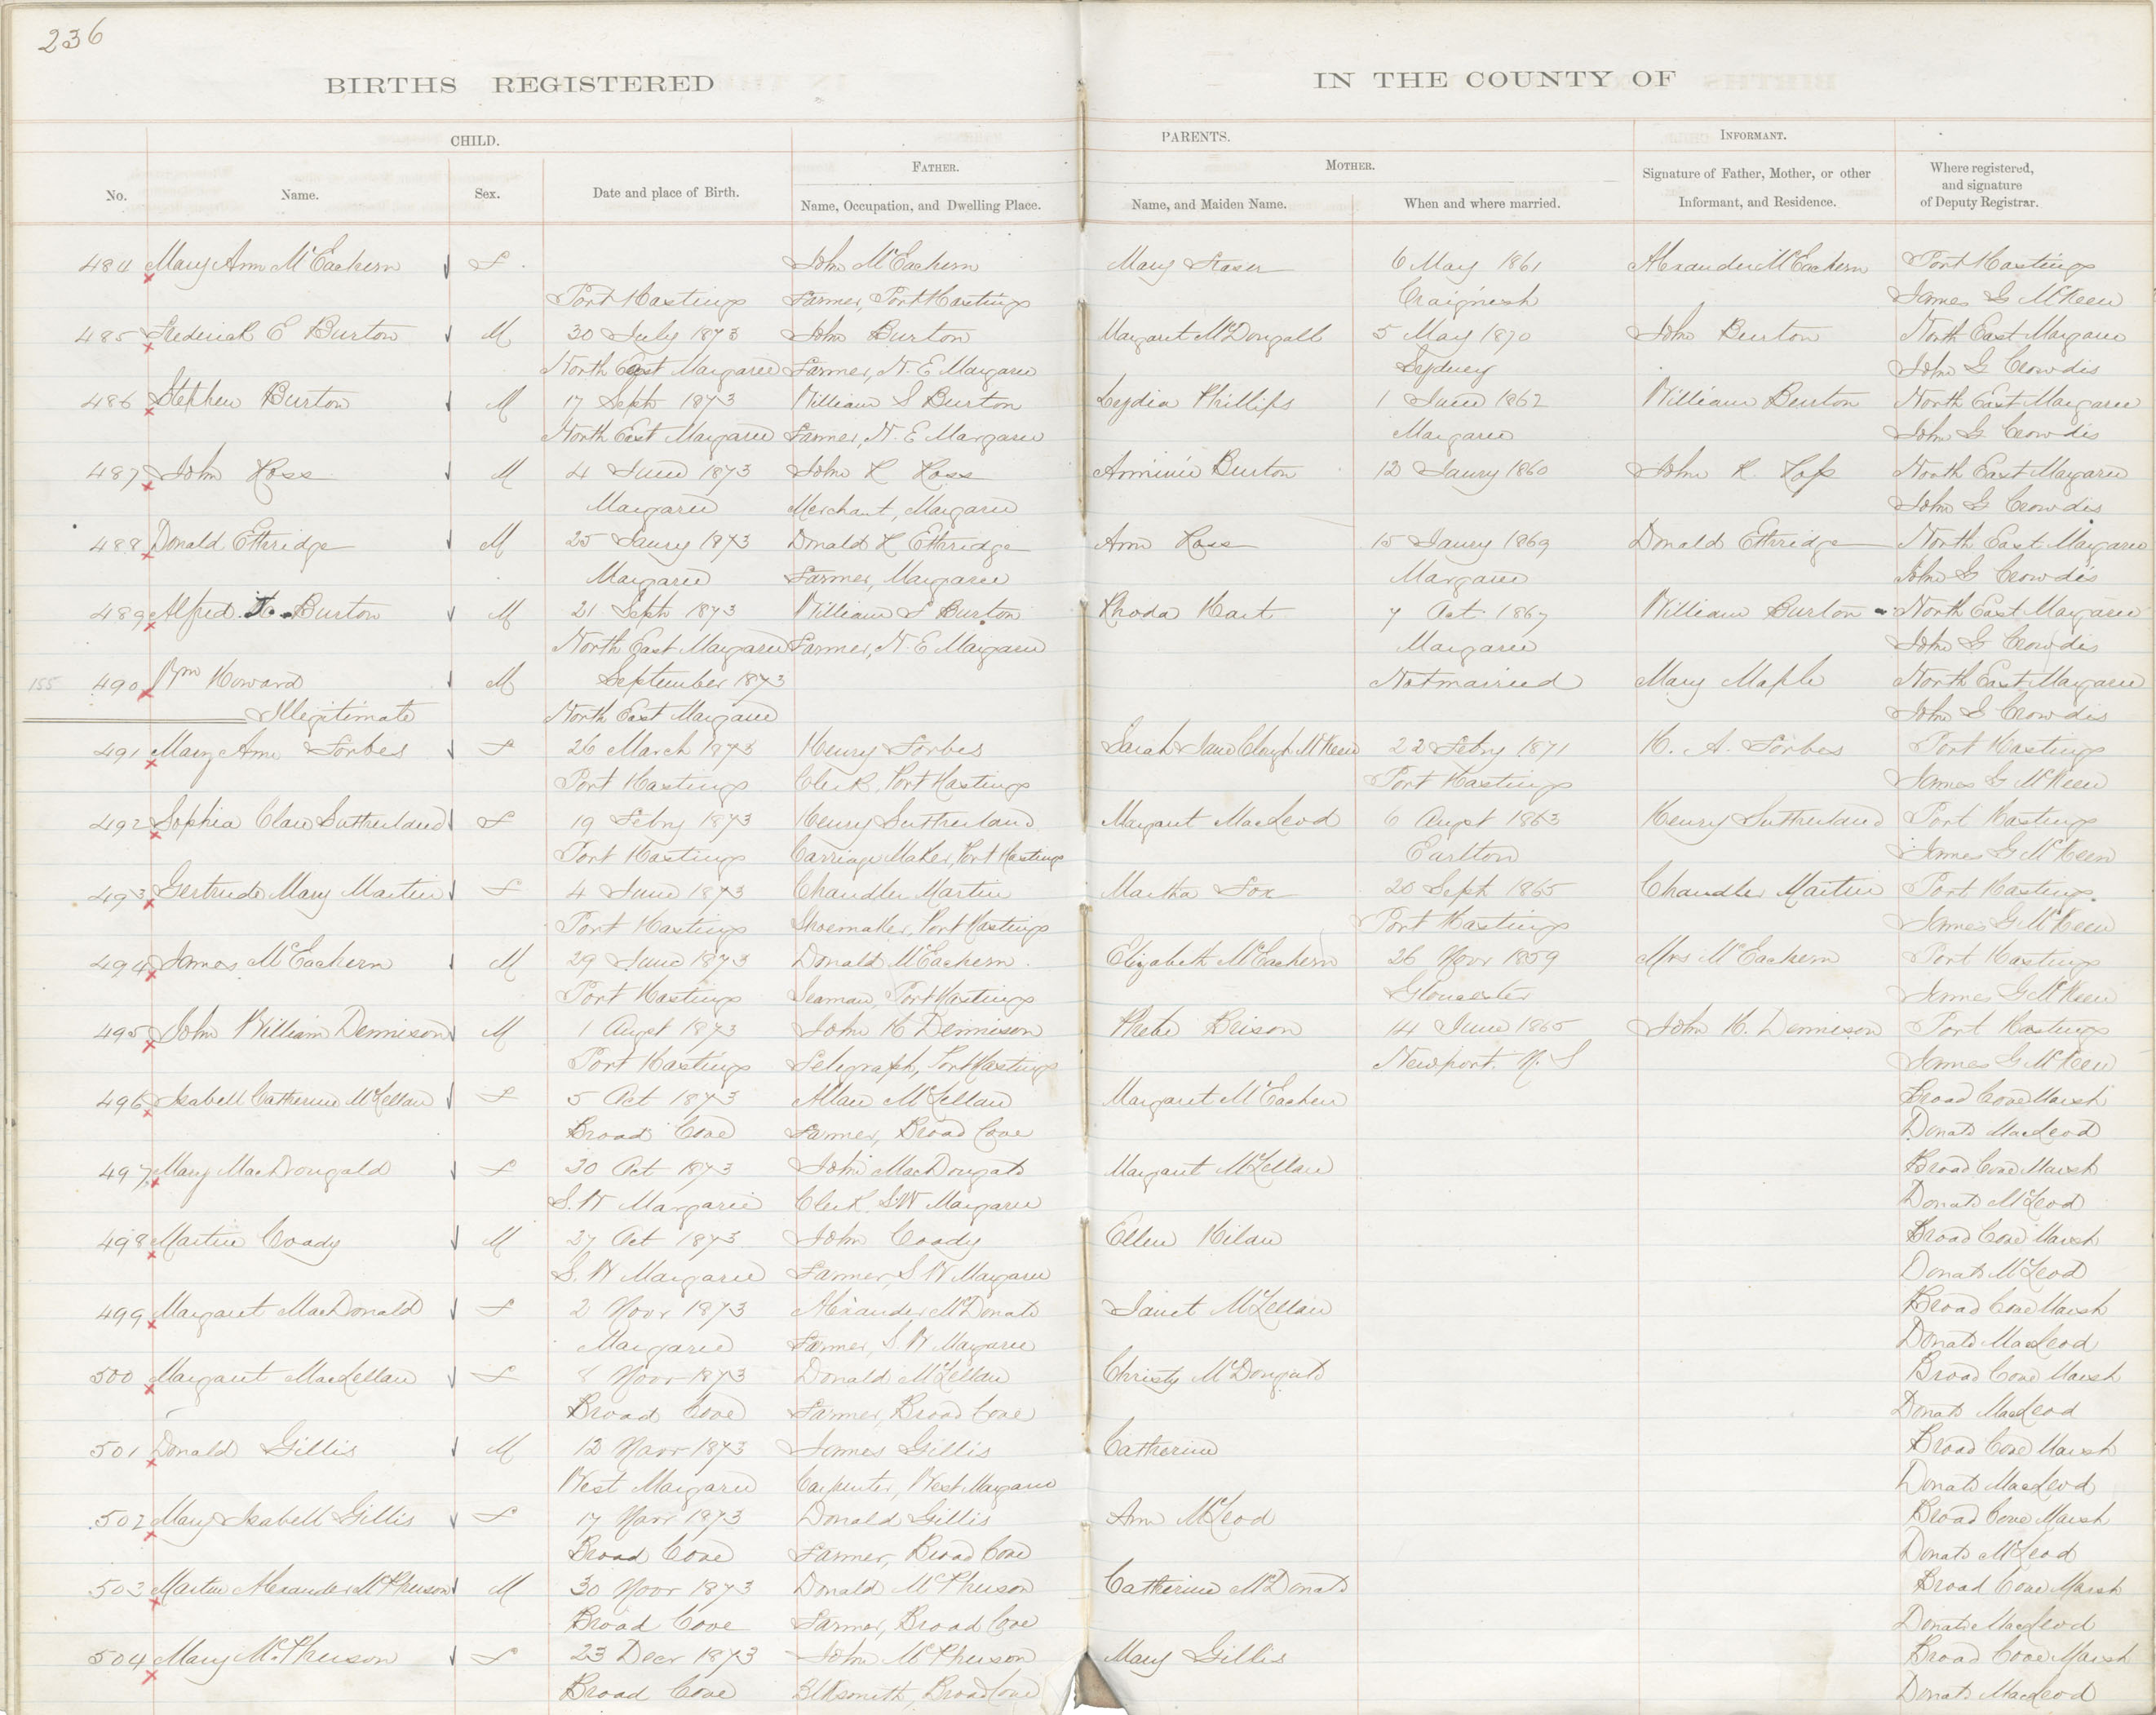 236
BIRTHS REGISTERED IN THE COUNTY OF
CHILD. PARENTS. INFORMANT.
FATHER. MOTHER.
No. Name. Sex. Date and place of Birth. Name, Occupation, and Dwelling Place. Name, and Maiden Name. When and where married. Signature of Father, Mother, or other Informant, and Residence. Where registered, and signature of Deputy Registrar.
484 Mary Ann McEachern F John McEachern Mary Fraser 6 May 1861 Alexander McEachern Port Hastings
Port Hastings Farmer, Port Hastings Craignish James G McKeen
485 Frederick E Burton M 30 July 1873 John Burton Margaret McDougall 5 May 1870 John Burton North East Margaree
North East Margaree Farmer, N. E Margaree Sydney John G Crowdis
486 Stephen Burton M 17 Sept 1873 William S Burton Lydia Phillips 1 June 1862 William Burton North East Margaree
North East Margaree Farmer, N. E Margaree Margaree John G Crowdis
487 John Ross M 4 June 1873 John R Ross Arminie Burton 12 Jany 1860 John R. Ross North East Margaree
Margaree Merchant, Margaree John G Crowdis
488 Donald Ethridge M 25 Jany 1873 Donald R Ethridge Ann Ross 15 Jany 1869 Donald Ethridge North East Margaree
Margaree Farmer, Margaree Margaree John G Crowdis
489 Alfred Burton M 21 Sept 1873 William S Burton Rhoda Hart 7 Oct 1867 William Burton North East Margaree
North East Margaree Farmer, N. E Margaree Margaree John G Crowdis
155 490 Wm Howard M September 1873 Not married Mary Maple North East Margaree
Illegitimate North East Margaree John G Crowdis
491 Mary Ann Forbes F 26 March 1873 Henry Forbes Sarah Jane Clough McKeen 22 Feby 1871 H. A. Forbes Port Hastings
Port Hastings Clerk, Port Hastings Port Hastings James G McKeen
492 Sophia Clare Sutherland F 19 Feby 1873 Henry Sutherland Margaret MacLeod 6 Augst 1863 Henry Sutherland Port Hastings
Port Hastings Carriage Maker, Port Hastings Earltown James G McKeen
493 Gertrude Mary Martin F 4 June 1873 Chandler Martin Martha Fox 20 Sept 1865 Chandler Martin Port Hastings
Port Hastings Shoemaker, Port Hastings Port Hastings James G McKeen
494 James McEachern M 29 June 1873 Donald McEachern Elizabeth McEachern 26 Novr 1859 Mrs McEachern Port Hastings
Port Hastings Seaman, Port Hastings Gloucester James G McKeen
495 John William Dennison M 1 Augst 1873 John H Dennison Phebe Brison 14 June 1865 John H. Dennison Port Hastings
Port Hastings Telegraph, Port Hastings Newport. N. S James G McKeen
496 Isabell Catherine McLellan F 5 Oct 1873 Allan McLellan Margaret McEachen Broad Cove Marsh
Broad Cove Farmer, Broad Cove Donald MacLeod
497 Mary MacDougald F 30 Oct 1873 John MacDougald Margaret McLellan Broad Cove Marsh
S. W Margaree Clerk, S. W Margaree Donald McLeod
498 Martin Coady M 27 Oct 1873 John Coady Ellen Kilan Broad Cove Marsh
S. W Margaree Farmer, S W Margaree Donald McLeod
499 Margaret MacDonald F 2 Novr 1873 Alexander McDonald Janet McLellan Broad Cove Marsh
Margaree Farmer, S. W Margaree Donald MacLeod
500 Margaret MacLellan F 8 Novr 1873 Donald McLellan Christy McDougald Broad Cove Marsh
Broad Cove Farmer, Broad Cove Donald MacLeod
501 Donald Gillis M 12 Novr 1873 James Gillis Catherine Broad Cove Marsh
West Margaree Carpenter, West Margaree Donald MacLeod
502 Mary Isabell Gillis F 17 Novr 1873 Donald Gillis Ann McLeod Broad Cove Marsh
Broad Cove Farmer, Broad Cove Donald McLeod
503 Martin Alexander McPherson M 30 Novr 1873 Donald McPherson Catherine McDonald Broad Cove Marsh
Broad Cove Farmer, Broad Cove Donald MacLeod
504 Mary McPherson F 23 Decr 1873 John McPherson Mary Gillis Broad Cove Marsh
Broad Cove Blksmith, Broad Cove Donald MacLeod